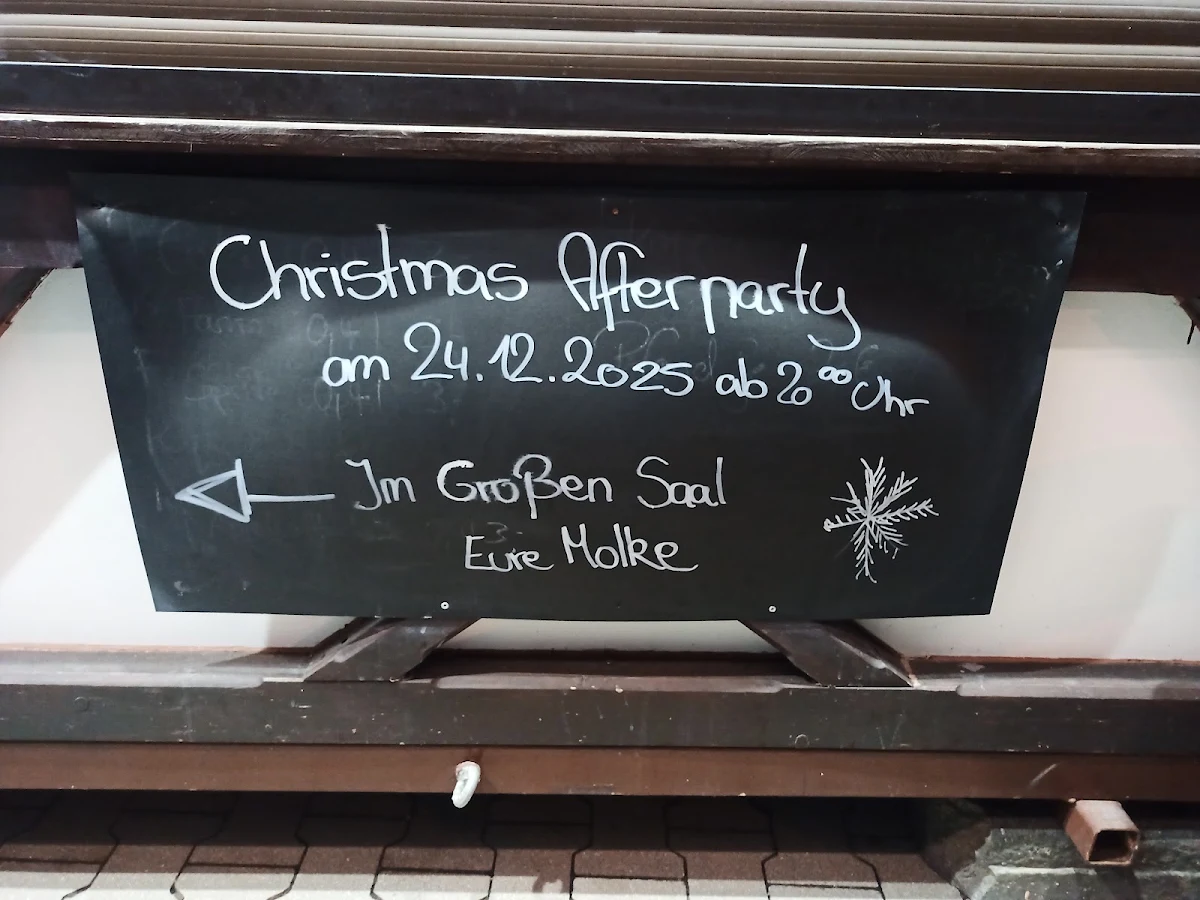 Christmas Afterparty
am 24.12.2025 ab 20⁰⁰ Uhr
Im Großen Saal
Eure Molke